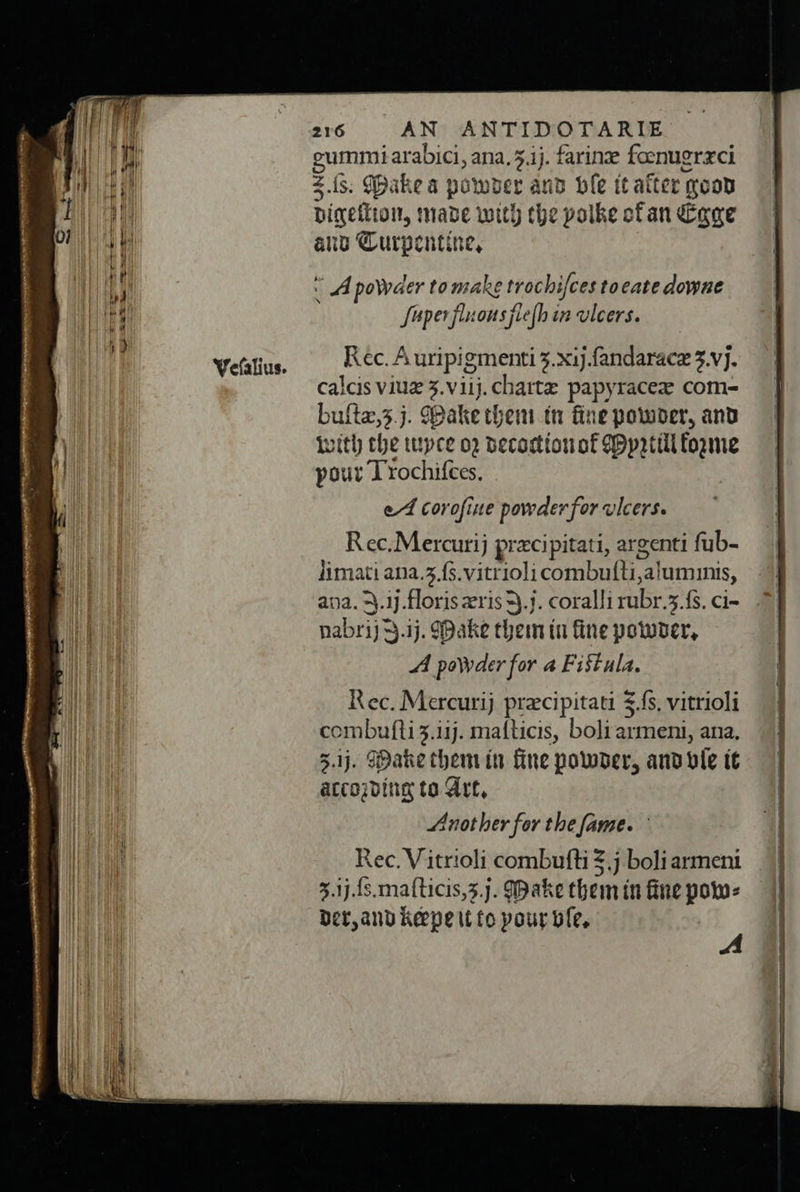 216 AN ANTIDOTARIE
gummi arabici, ana. ʒ.ij. farinæ fœnugræci
℥.ſs. Make a powder and vſe it after good
digeſtion, made with the yolke of an Egge
and Turpentine,
A powder to make trochiſces to eate downe
ſuperfluous fleſh in vlcers.
Veſalius.
Rec. Auripigmenti ʒ.xij. ſandaracæ ʒ.vj.
calcis viuæ ʒ.viij. chartæ papyraceæ com-
buſtæ, ʒ.j. Make them in fine powder, and
with the iuyce oꝛ decoction of Myꝛtill foꝛme
your Trochiſces.
A coroſiue powder for vlcers.
Rec. Mercurij præcipitati, argenti ſub-
limati ana. ʒ.ſs. vitrioli combuſti, aluminis,
ana. ℈.ij. floris æris ℈.j. coralli rubr. ʒ.ſs. ci-
nabrij ℈.ij. Make them in fine powder,
A powder for a Fiſtula.
Rec. Mercurij præcipitati ℥.ſs, vitrioli
combuſti ʒ.iij. maſticis, boli armeni, ana,
ʒ.ij. Make them in fine powder, and vſe it
accoꝛding to Art,
Another for the ſame.
Rec. Vitrioli combuſti ℥.j boli armeni
ʒ.ij.ſs. maſticis, ʒ.j. Make them in fine pow-
der, and kéepe it to your vſe,
A